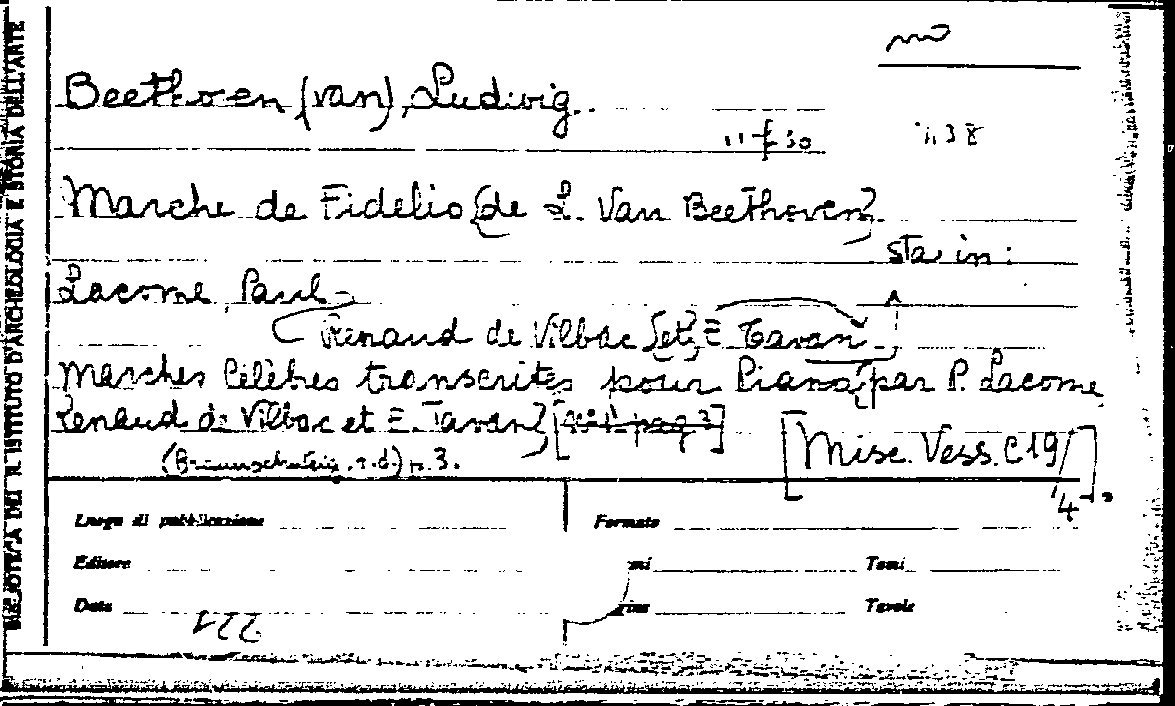 Beethoven (van), Ludwig.
Marche de Fidelio [de L. Van Beethoven]
sta in:
Lacome, Paul -
Renaud de Vilbac [et] E. Tavan
Marches Célèbres transcrites pour Piano [par P. Lacome
Renaud de Vilbac et E. Tavan] [N° 1. pag 3]
(Braunschweig, s.d.) p. 3.
[Misc. Vess. C 19/4].
Luogo di pubblicazione
Formato
Editore
Tomi
Data
Tavole
221
BIBLIOTECA DEL R. ISTITUTO D'ARCHEOLOGIA E STORIA DELL'ARTE